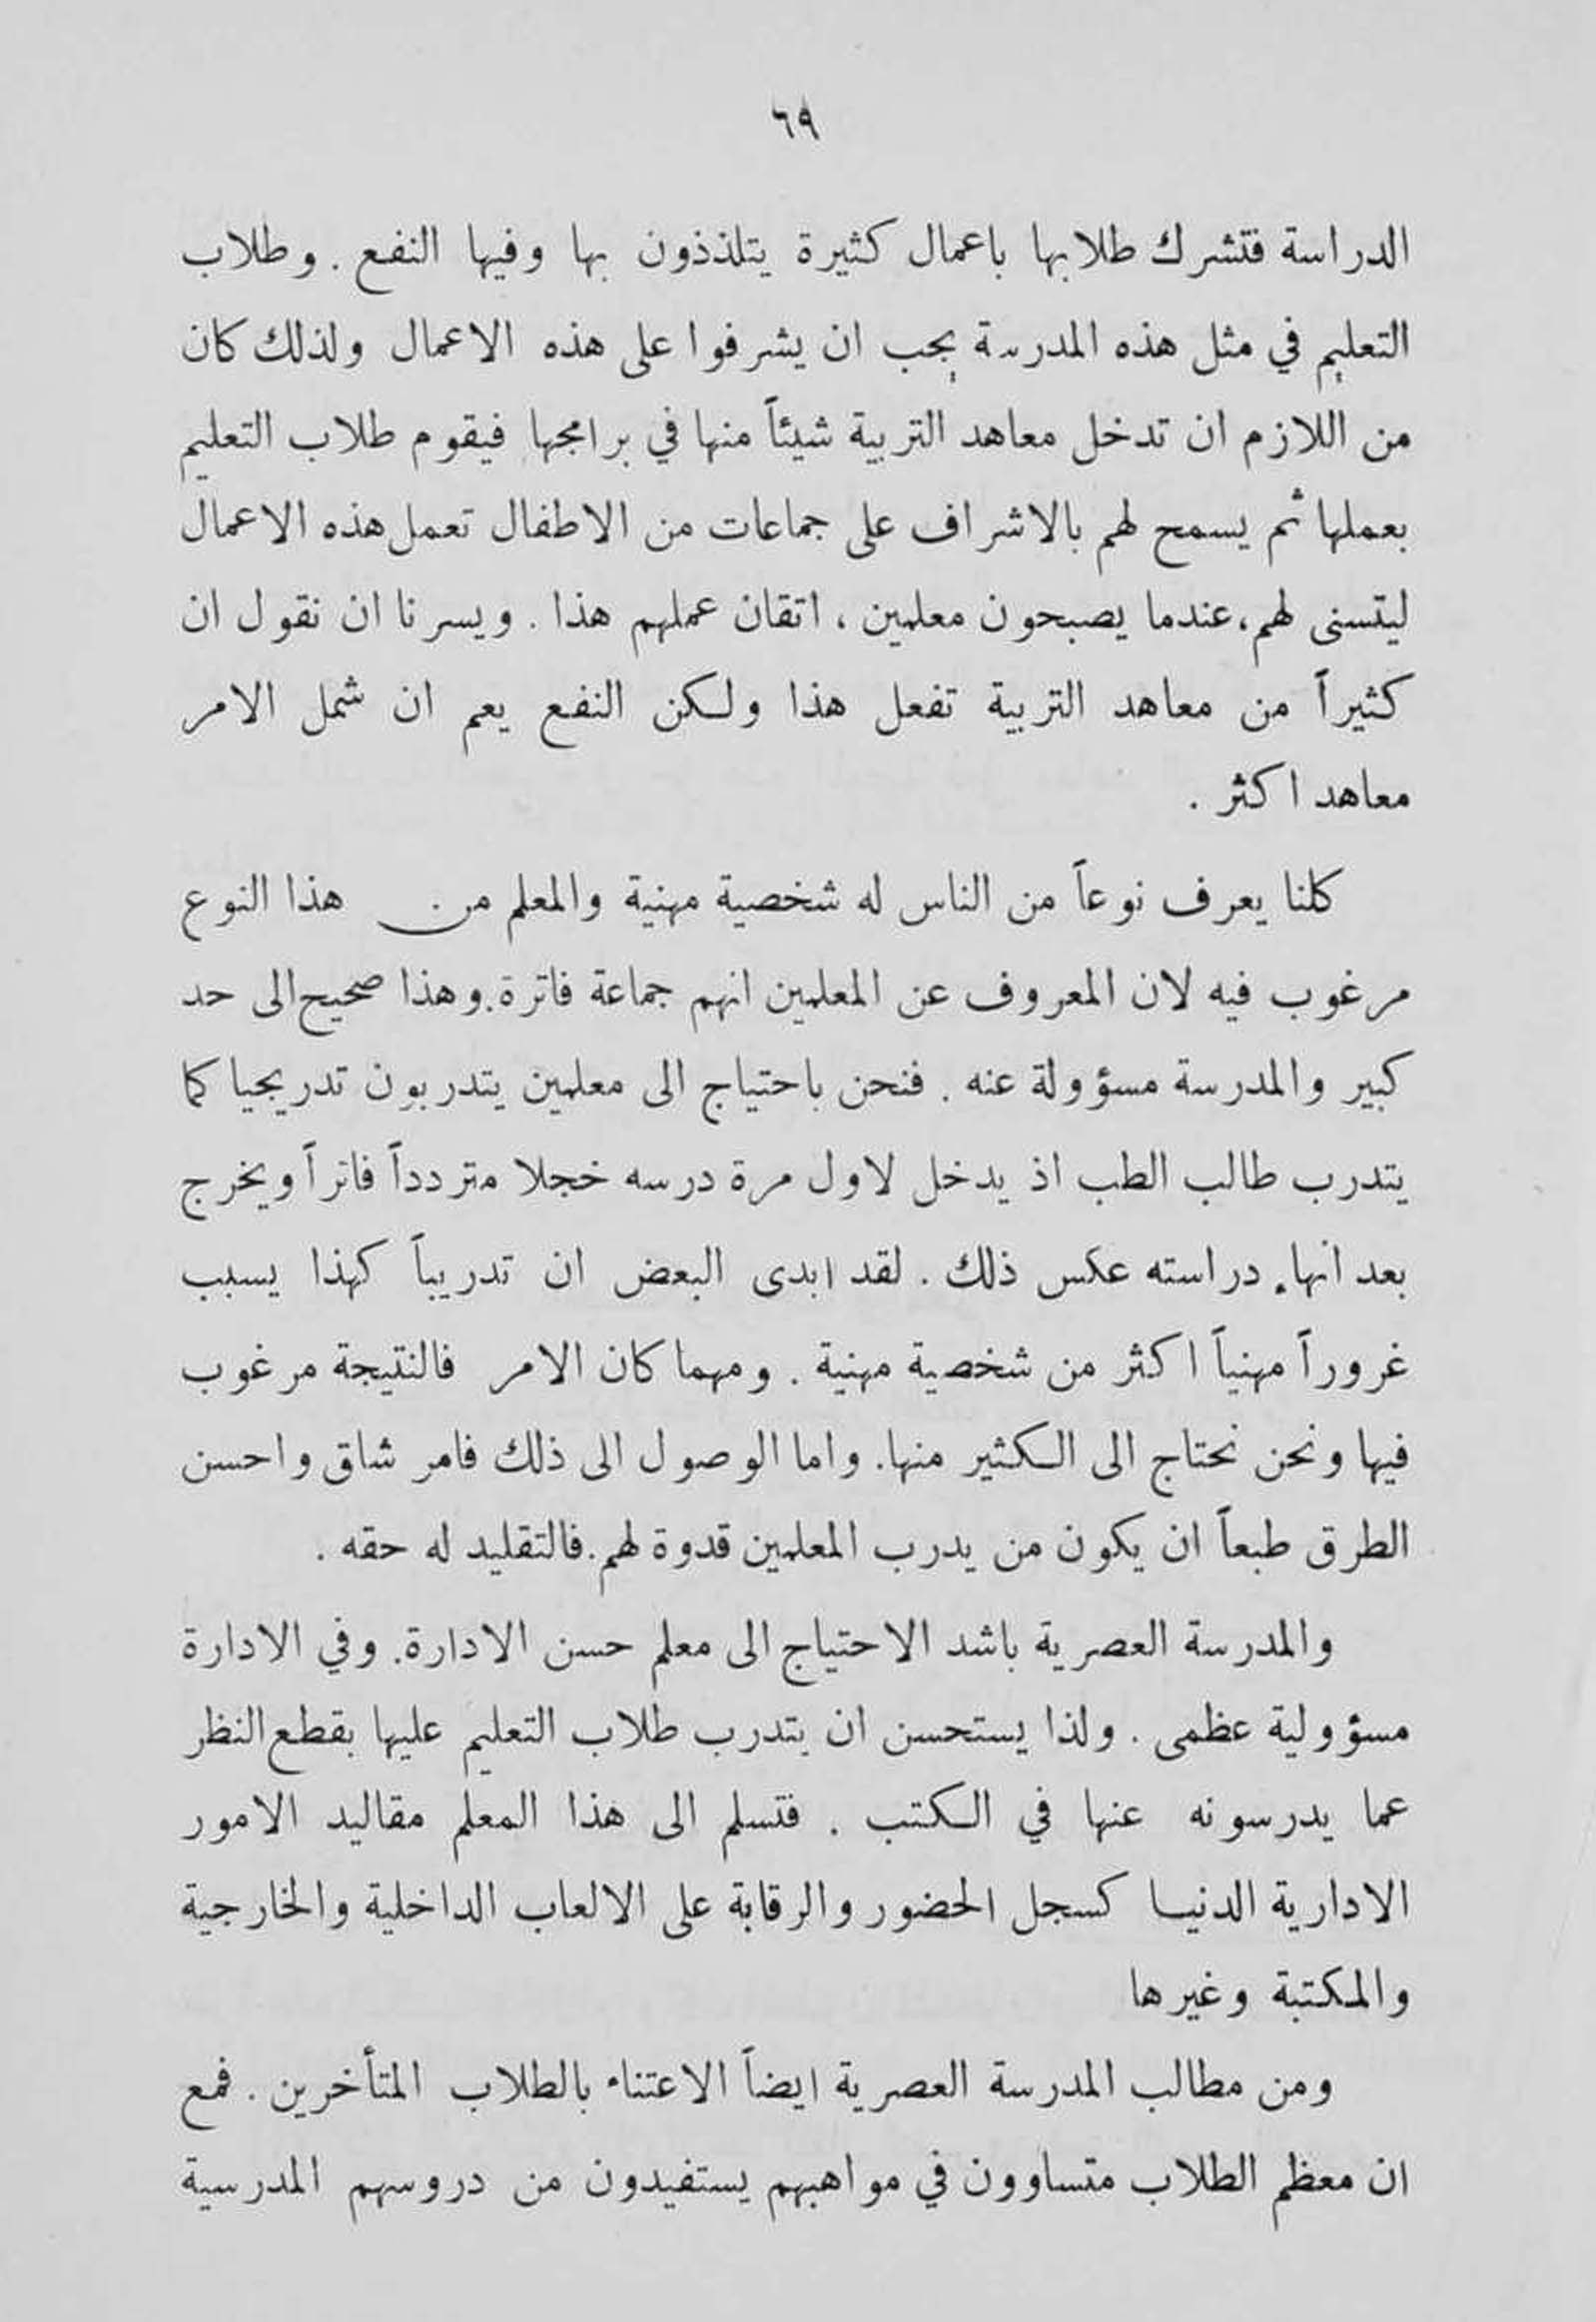 ٦٩
الدراسة فتشرك طلابها باعمال كثيرة يتلذذون بها وفيها النفع . وطلاب
التعليم في مثل هذه المدرسة يجب ان يشرفوا على هذه الاعمال ولذلك كان
من اللازم ان تدخل معاهد التربية شيئاً منها في برامجها فيقوم طلاب التعليم
بعملها ثم يسمح لهم بالاشراف على جماعات من الاطفال تعمل هذه الاعمال
ليتسنى لهم، عندما يصبحون معلمين ، اتقان عملهم هذا . ويسرنا ان نقول ان
كثيراً من معاهد التربية تفعل هذا ولكن النفع يعم ان شمل الامر
معاهد اكثر .
كلنا يعرف نوعاً من الناس له شخصية مهنية والمعلم من هذا النوع
مرغوب فيه لان المعروف عن المعلمين انهم جماعة فاترة. وهذا صحيح الى حد
كبير والمدرسة مسؤولة عنه . فنحن باحتياج الى معلمين يتدربون تدريجيا كما
يتدرب طالب الطب اذ يدخل لاول مرة درسه خجلا متردداً فاتراً ويخرج
بعد انهاء دراسته عكس ذلك . لقد ابدى البعض ان تدريباً كهذا يسبب
غروراً مهنياً اكثر من شخصية مهنية . ومهما كان الامر فالنتيجة مرغوب
فيها ونحن نحتاج الى الكثير منها. واما الوصول الى ذلك فامر شاق واحسن
الطرق طبعاً ان يكون من يدرب المعلمين قدوة لهم. فالتقليد له حقه .
والمدرسة العصرية باشد الاحتياج الى معلم حسن الادارة. وفي الادارة
مسؤولية عظمى . ولذا يستحسن ان يتدرب طلاب التعليم عليها بقطع النظر
عما يدرسونه عنها في الكتب . فتسلم الى هذا المعلم مقاليد الامور
الادارية الدنيا كسجل الحضور والرقابة على الالعاب الداخلية والخارجية
والمكتبة وغيرها
ومن مطالب المدرسة العصرية ايضاً الاعتناء بالطلاب المتأخرين . فمع
ان معظم الطلاب متساوون في مواهبهم يستفيدون من دروسهم المدرسية